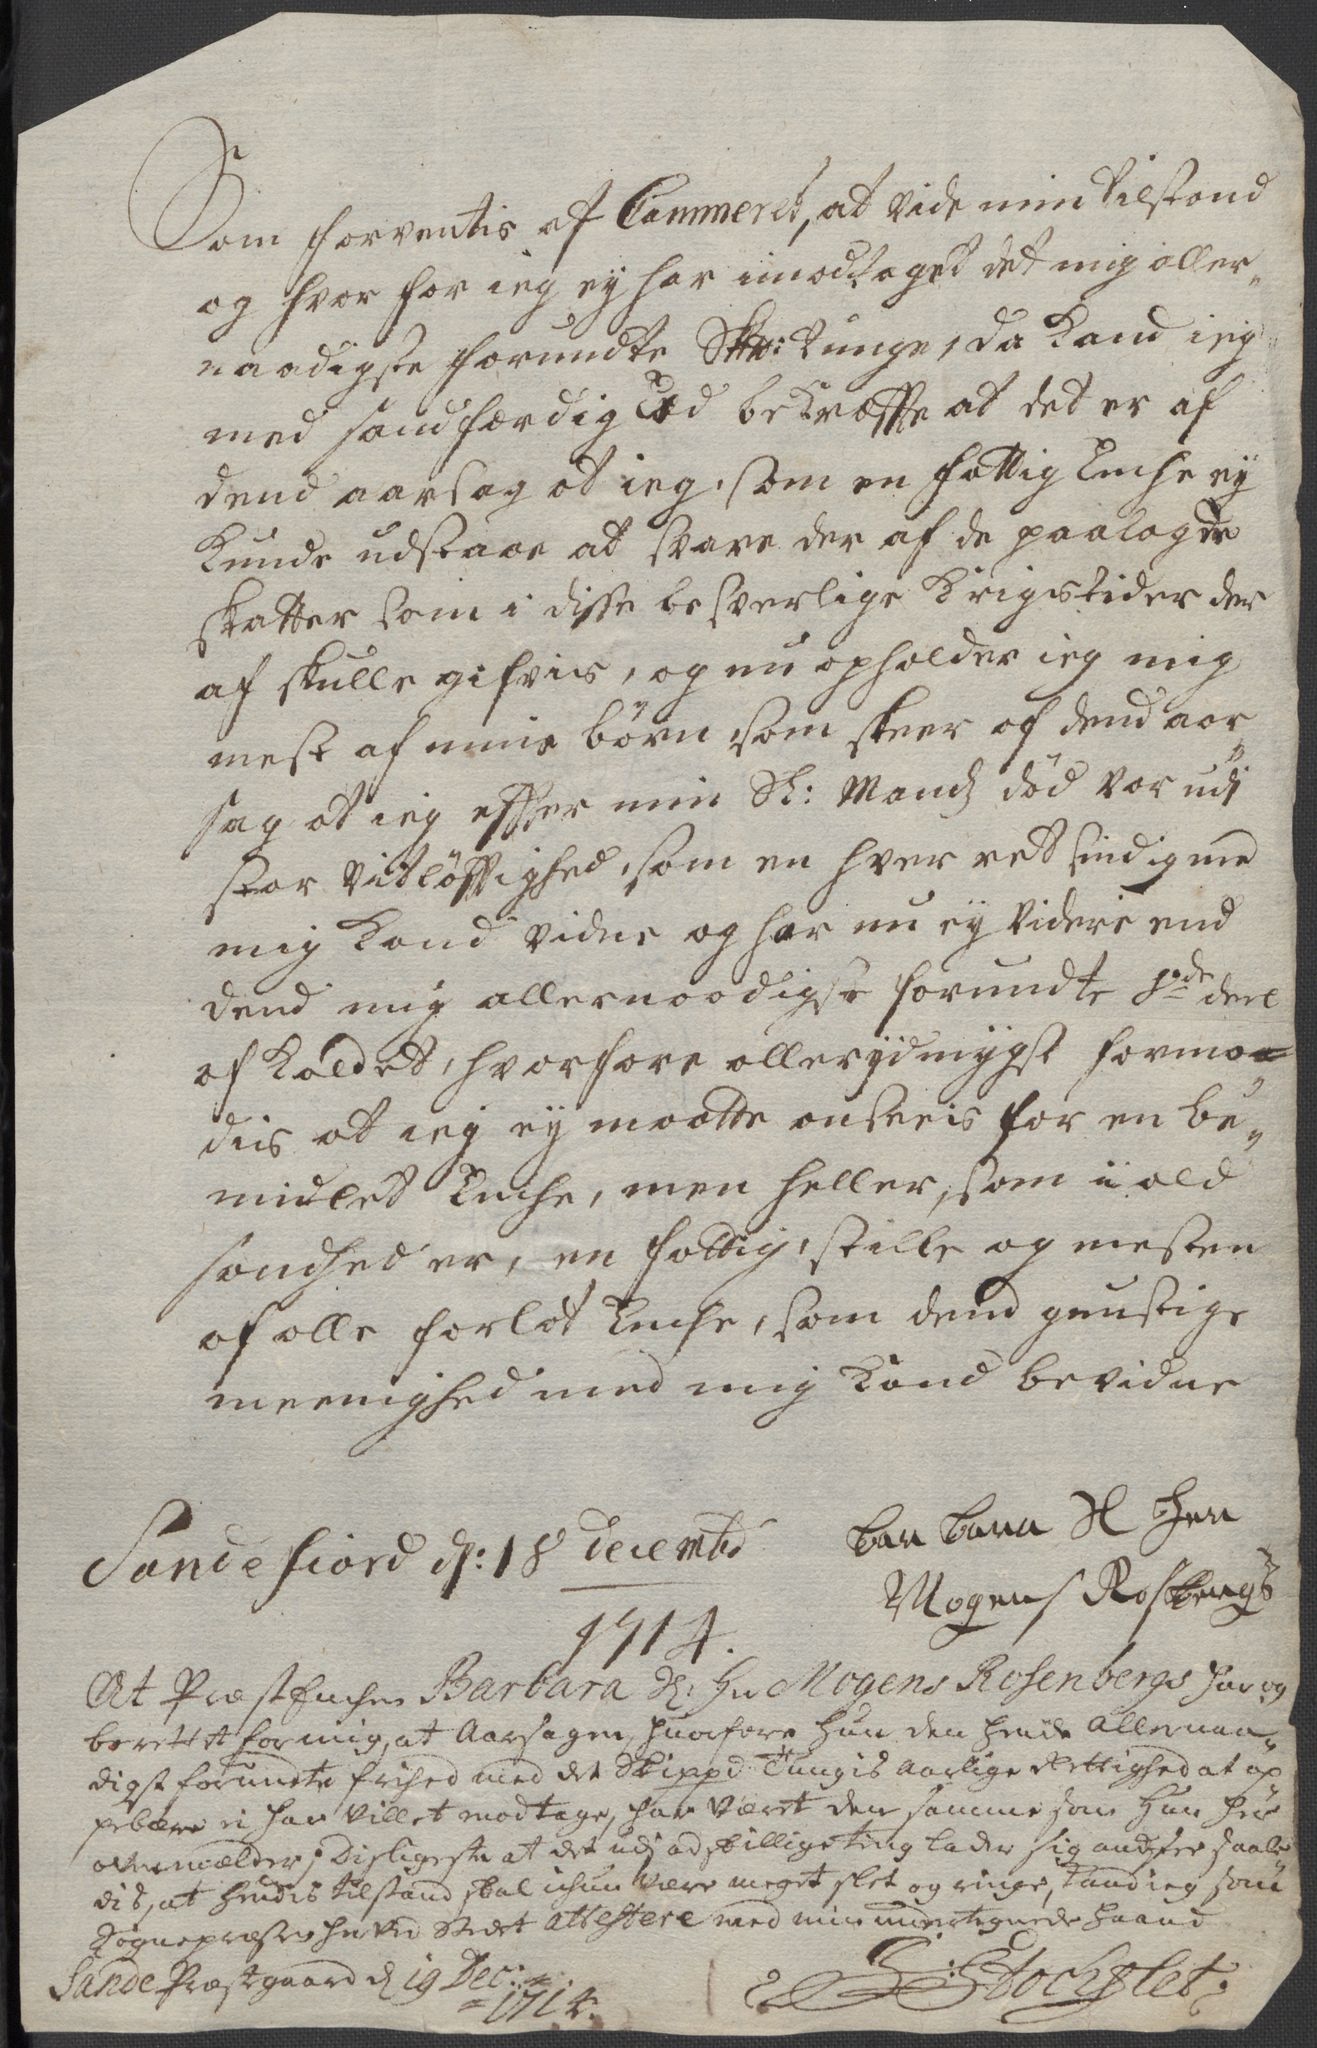 Som forventis af Cammeret, at vide min tilstand
og hvor for ieg ey har imodtaget det mig aller-
naadigste forundte Skp: tunge, da kand ieg
med sandfærdig Eed bekræffte at det er af
dend aarsag at ieg som en fattig Enche ey
kunde udstaae at svare der af de paalagde
skatter som i disse besverlige Krigestider der
af skulle gifvis, og nu opholder ieg mig
mest af mine børn som skeer af dend aar
sag at ieg effter min Sl: Mands død var udi
stor vitløfftighed, som en hver ret sindig med
mig kand vidne og har nu ey videre end
dend mig allernaadigst forundte 8de deel
af Kaldet, hvorfore allerydmygst formo-
dis at ieg ey maatte anseeis for en be-
midlet Enche, men heller, som i ald
sandhed er, en fattig, stille og mesten
af alle forlat Enche, som dend gunstige
meenighed med mig kand bevidne
Sandefiord d: 18 decembd
1714.
barbara Sl Her
Mogens Rosenbergs
At Præst Enchen Barbara Sl: Hr Mogens Rosenbergs har og
berettet for mig, at Aarsagen, hvorfore hun den hende Allernaa-
digst forundte frihed med det Skippd Tungis aarlige Rettighed at op
pebære ei har villet modtage, har været den samme som hun her
oven melder; Disligeste at det udj adskillige ting lader sig ansee saale
dis, at hendis tilstand skal ichun være meget slet og ringe, kand ieg som
Sognepræst her ved Stedet attestere med min undertegnede haand
Sande Præstgaard d 19 Dec:
1714.
S: Stochflet